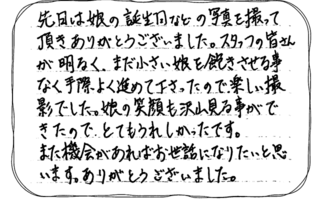 先日は娘の誕生日などの写真を撮って
頂きありがとうございました。スタッフの皆さん
が明るく、まだ小さい娘を飽きさせる事
なく手際よく進めて下さったので楽しい撮
影でした。娘の笑顔も沢山見る事がで
きたので、とてもうれしかったです。
また機会があればお世話になりたいと思
います。ありがとうございました。